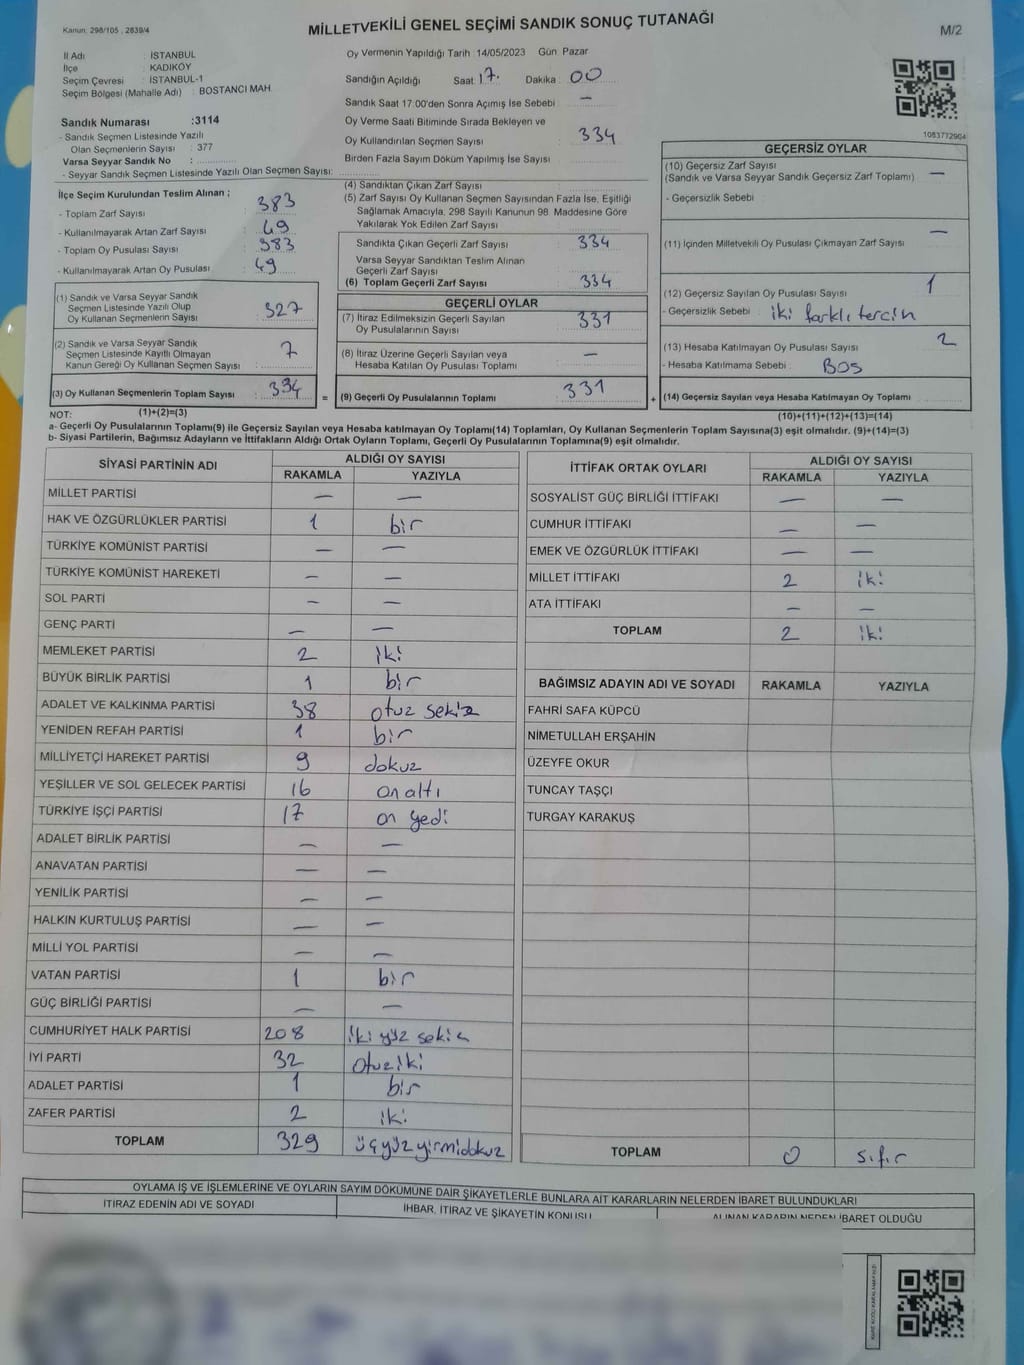 Kanun: 298/105 , 2839/4
MİLLETVEKİLİ GENEL SEÇİMİ SANDIK SONUÇ TUTANAĞI
M/2
İl Adı : İSTANBUL
İlçe : KADIKÖY
Seçim Çevresi : İSTANBUL-1
Seçim Bölgesi (Mahalle Adı) : BOSTANCI MAH.
Sandık Numarası :3114
- Sandık Seçmen Listesinde Yazılı
Olan Seçmenlerin Sayısı : 377
Varsa Seyyar Sandık No :
- Seyyar Sandık Seçmen Listesinde Yazılı Olan Seçmen Sayısı:
Oy Vermenin Yapıldığı Tarih :14/05/2023 Gün Pazar
Sandığın Açıldığı Saat 17. Dakika 00
Sandık Saat 17:00'den Sonra Açımış İse Sebebi —
Oy Verme Saati Bitiminde Sırada Bekleyen ve
Oy Kullandırılan Seçmen Sayısı 334
Birden Fazla Sayım Döküm Yapılmış İse Sayısı
1083772904
İlçe Seçim Kurulundan Teslim Alınan ;
- Toplam Zarf Sayısı 383
- Kullanılmayarak Artan Zarf Sayısı 49
- Toplam Oy Pusulası Sayısı 383
- Kullanılmayarak Artan Oy Pusulası 49
(1) Sandık ve Varsa Seyyar Sandık
Seçmen Listesinde Yazılı Olup
Oy Kullanan Seçmenlerin Sayısı 327
(2) Sandık ve Varsa Seyyar Sandık
Seçmen Listesinde Kayıtlı Olmayan
Kanun Gereği Oy Kullanan Seçmen Sayısı 7
(3) Oy Kullanan Seçmenlerin Toplam Sayısı 334
=
(4) Sandıktan Çıkan Zarf Sayısı
(5) Zarf Sayısı Oy Kullanan Seçmen Sayısından Fazla İse, Eşitliği
Sağlamak Amacıyla, 298 Sayılı Kanunun 98. Maddesine Göre
Yakılarak Yok Edilen Zarf Sayısı
Sandıkta Çıkan Geçerli Zarf Sayısı 334
Varsa Seyyar Sandıktan Teslim Alınan
Geçerli Zarf Sayısı
(6) Toplam Geçerli Zarf Sayısı 334
GEÇERLİ OYLAR
(7) İtiraz Edilmeksizin Geçerli Sayılan
Oy Pusulalarının Sayısı 331
(8) İtiraz Üzerine Geçerli Sayılan veya
Hesaba Katılan Oy Pusulası Toplamı —
(9) Geçerli Oy Pusulalarının Toplamı 331
+
GEÇERSİZ OYLAR
(10) Geçersiz Zarf Sayısı
(Sandık ve Varsa Seyyar Sandık Geçersiz Zarf Toplamı) —
- Geçersizlik Sebebi
(11) İçinden Milletvekili Oy Pusulası Çıkmayan Zarf Sayısı —
(12) Geçersiz Sayılan Oy Pusulası Sayısı 1
- Geçersizlik Sebebi : iki farklı tercih
(13) Hesaba Katılmayan Oy Pusulası Sayısı 2
- Hesaba Katılmama Sebebi BOS
(14) Geçersiz Sayılan veya Hesaba Katılmayan Oy Toplamı
NOT: (1)+(2)=(3)
(10)+(11)+(12)+(13)=(14)
a- Geçerli Oy Pusulalarının Toplamı(9) ile Geçersiz Sayılan veya Hesaba katılmayan Oy Toplamı(14) Toplamları, Oy Kullanan Seçmenlerin Toplam Sayısına(3) eşit olmalıdır. (9)+(14)=(3)
b- Siyasi Partilerin, Bağımsız Adayların ve İttifakların Aldığı Ortak Oyların Toplamı, Geçerli Oy Pusulalarının Toplamına(9) eşit olmalıdır.
SİYASİ PARTİNİN ADI ALDIĞI OY SAYISI
RAKAMLA YAZIYLA
MİLLET PARTİSİ — —
HAK VE ÖZGÜRLÜKLER PARTİSİ 1 bir
TÜRKİYE KOMÜNİST PARTİSİ — —
TÜRKİYE KOMÜNİST HAREKETİ — —
SOL PARTİ — —
GENÇ PARTİ — —
MEMLEKET PARTİSİ 2 iki
BÜYÜK BİRLİK PARTİSİ 1 bir
ADALET VE KALKINMA PARTİSİ 38 otuz sekiz
YENİDEN REFAH PARTİSİ 1 bir
MİLLİYETÇİ HAREKET PARTİSİ 9 dokuz
YEŞİLLER VE SOL GELECEK PARTİSİ 16 on altı
TÜRKİYE İŞÇİ PARTİSİ 17 on yedi
ADALET BİRLİK PARTİSİ — —
ANAVATAN PARTİSİ — —
YENİLİK PARTİSİ — —
HALKIN KURTULUŞ PARTİSİ — —
MİLLİ YOL PARTİSİ — —
VATAN PARTİSİ 1 bir
GÜÇ BİRLİĞİ PARTİSİ — —
CUMHURİYET HALK PARTİSİ 208 iki yüz sekiz
İYİ PARTİ 32 otuziki
ADALET PARTİSİ 1 bir
ZAFER PARTİSİ 2 iki
TOPLAM 329 üçyüz yirmidokuz
İTTİFAK ORTAK OYLARI ALDIĞI OY SAYISI
RAKAMLA YAZIYLA
SOSYALİST GÜÇ BİRLİĞİ İTTİFAKI — —
CUMHUR İTTİFAKI — —
EMEK VE ÖZGÜRLÜK İTTİFAKI — —
MİLLET İTTİFAKI 2 iki
ATA İTTİFAKI — —
TOPLAM 2 iki
BAĞIMSIZ ADAYIN ADI VE SOYADI RAKAMLA YAZIYLA
FAHRİ SAFA KÜPCÜ
NİMETULLAH ERŞAHİN
ÜZEYFE OKUR
TUNCAY TAŞÇI
TURGAY KARAKUŞ
TOPLAM 0 sıfır
OYLAMA İŞ VE İŞLEMLERİNE VE OYLARIN SAYIM DÖKÜMÜNE DAİR ŞİKAYETLERLE BUNLARA AİT KARARLARIN NELERDEN İBARET BULUNDUKLARI
İTİRAZ EDENİN ADI VE SOYADI İHBAR, İTİRAZ VE ŞİKAYETİN KONUSU ALINAN KARARIN NEDEN İBARET OLDUĞU